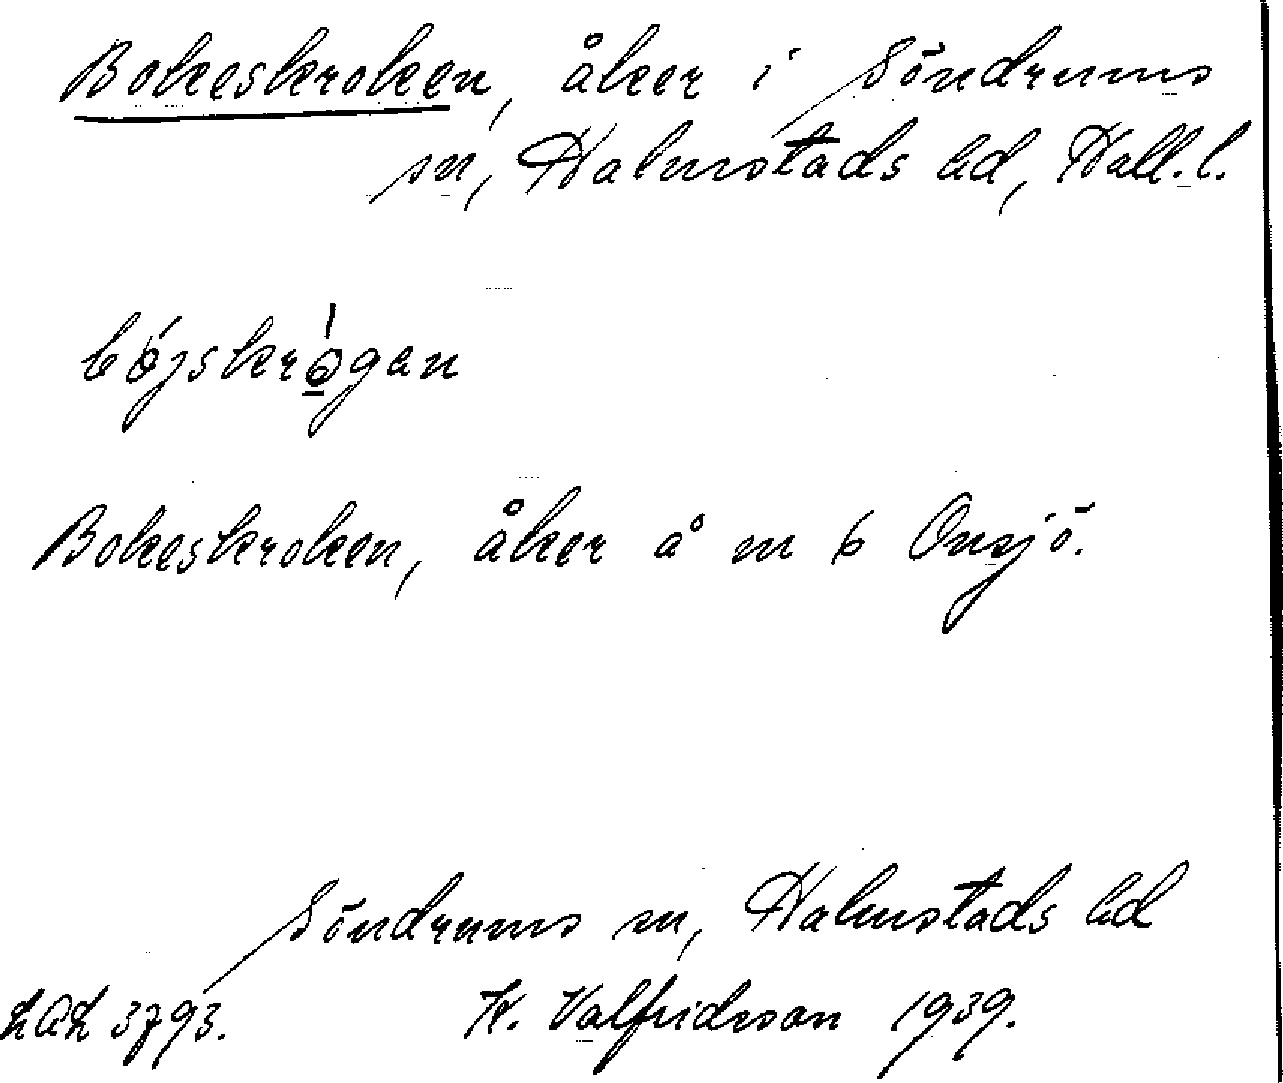 Bokeskroken, åker i Söndrums
sn, Halmstads hd, Hall. l.
bǿjskrògan
Bokeskroken, åker å n:o 6 Onsjö.
Söndrums sn, Halmstads hd
LAL 3793. K. Valfridsson 1939.